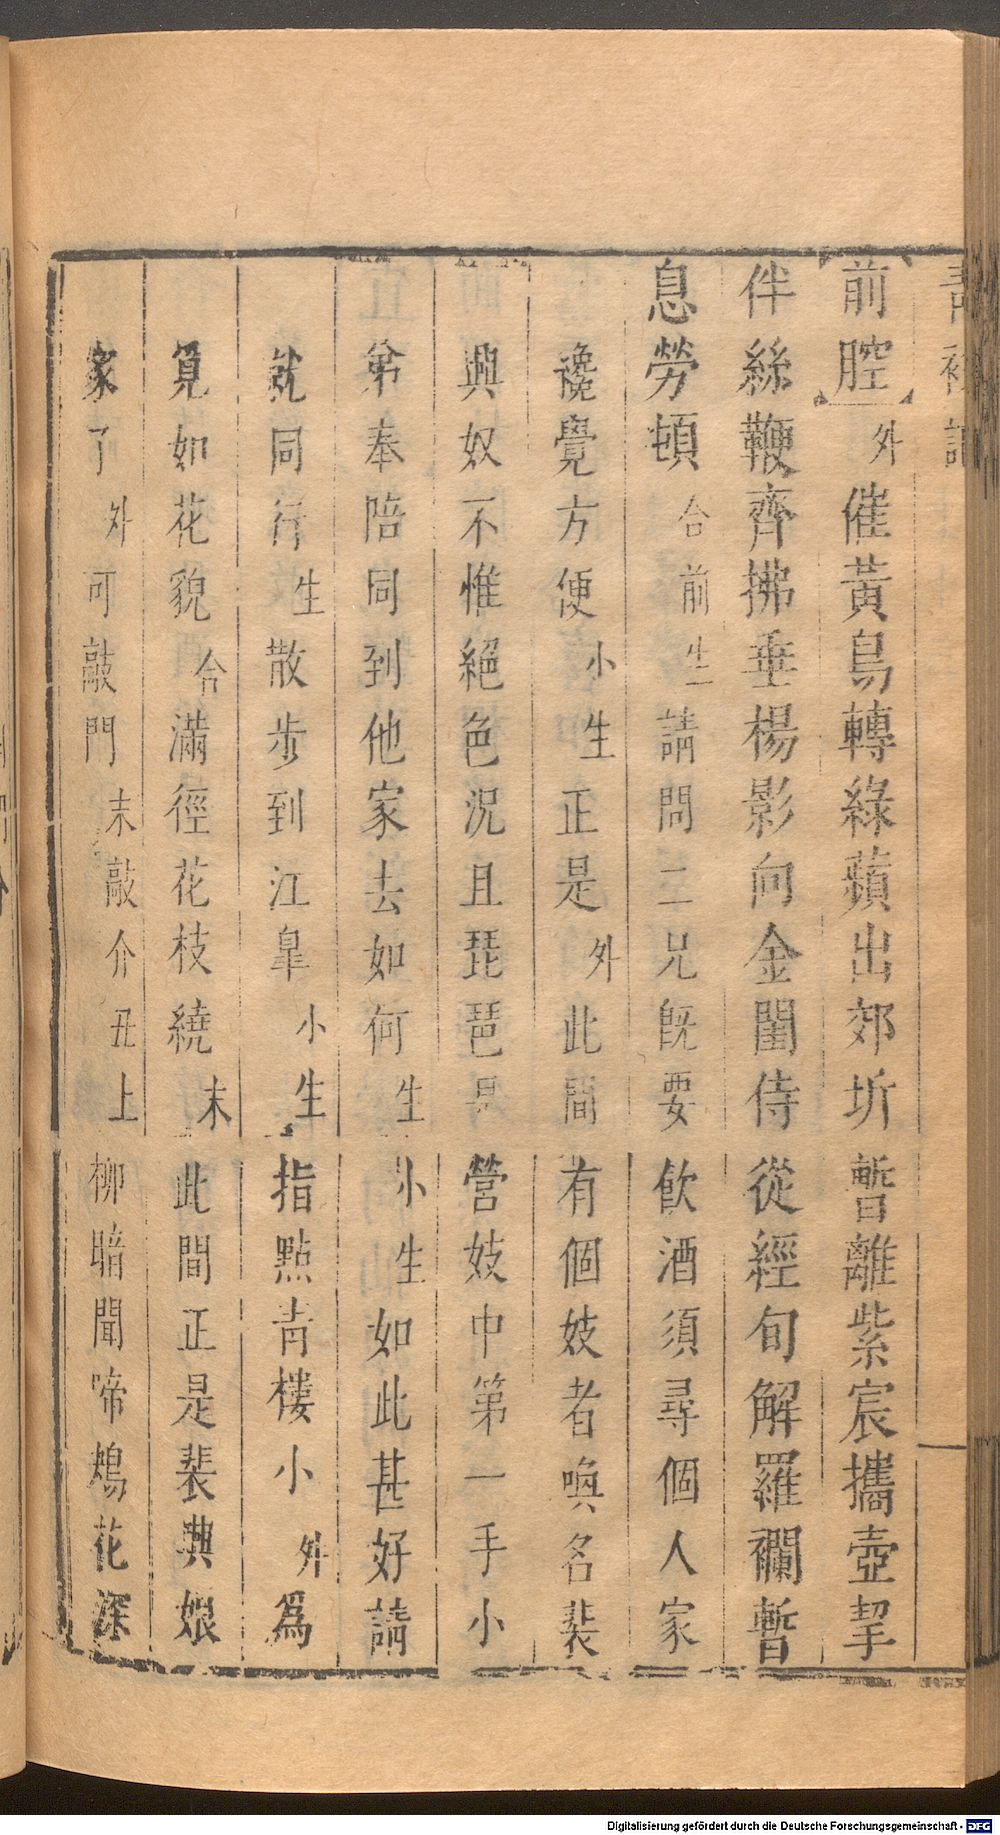 青衫記
前腔外催黃鳥轉綠蘋出郊圻暫離紫宸攜壺挈
伴絲鞭齊拂垂楊影向金閨侍從經旬解羅襴暫
息勞頓合前生二請問二兄既要飲酒須尋個人家
纔覺方便小生正是外此間有個妓者喚名裴
興奴不惟絕色況且琵琶是營妓中第一手小
弟奉陪同到他家去如何生小生如此甚好請
就同行生散步到江皐小生指點青樓小外爲
覓如花貌合滿徑花枝繞末此間正是裴興娘
家了外可敲門末敲介丑上柳暗聞啼鴂花深
Digitalisierung gefördert durch die Deutsche Forschungsgemeinschaft - DFG